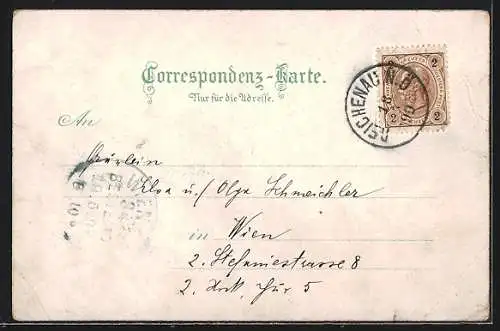 Correspondenz-Karte.
Nur für die Adresse.
2 2
REICHENAU N.Ö.
18
An
Fräulein
u./ Olga Schmeichler
in Wien
2. Stefaniestrasse 8
2. Thür 5